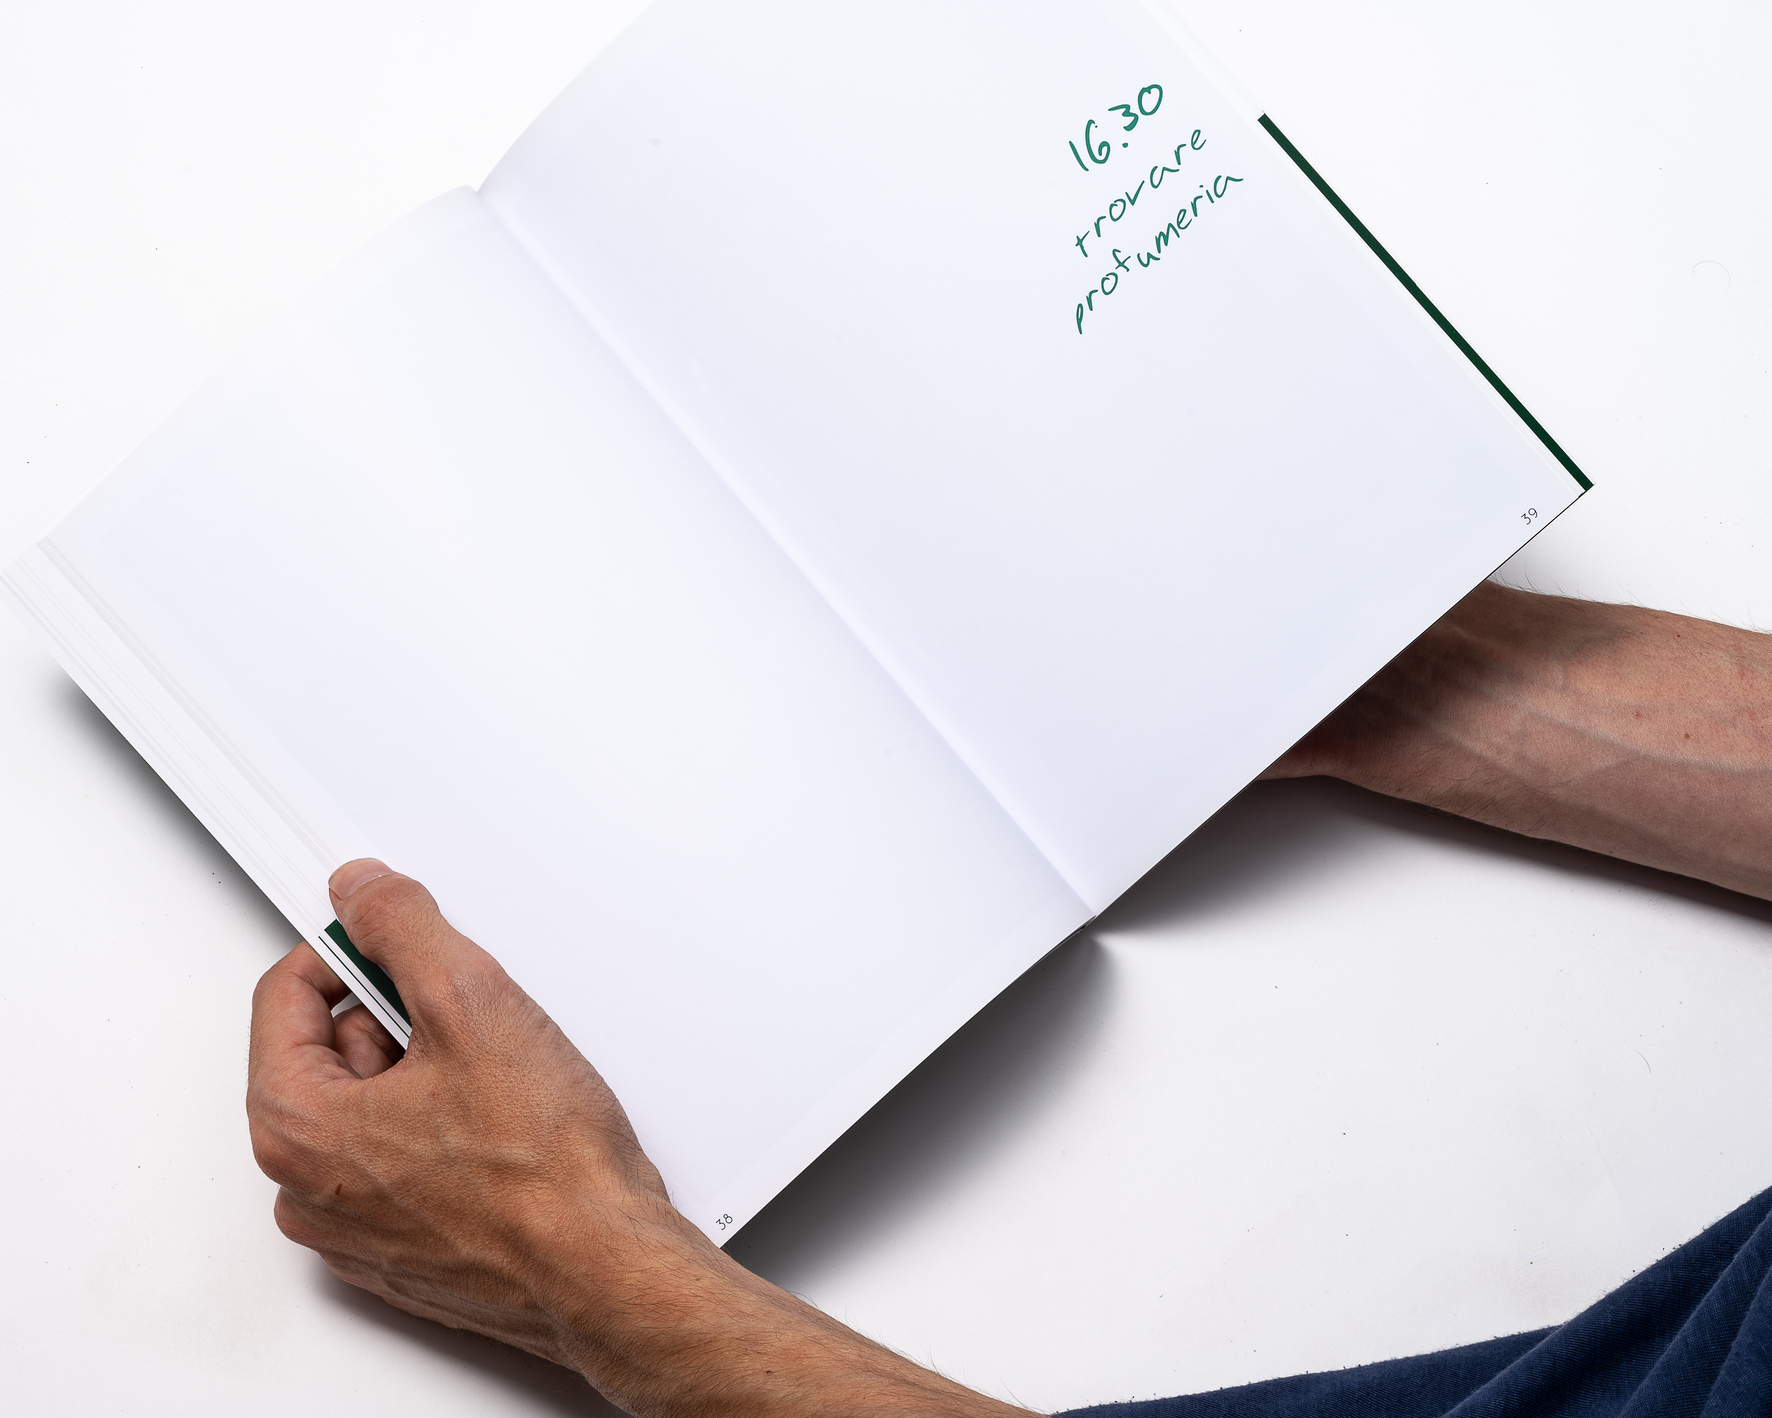 16.30
trovare
profumeria
39
38